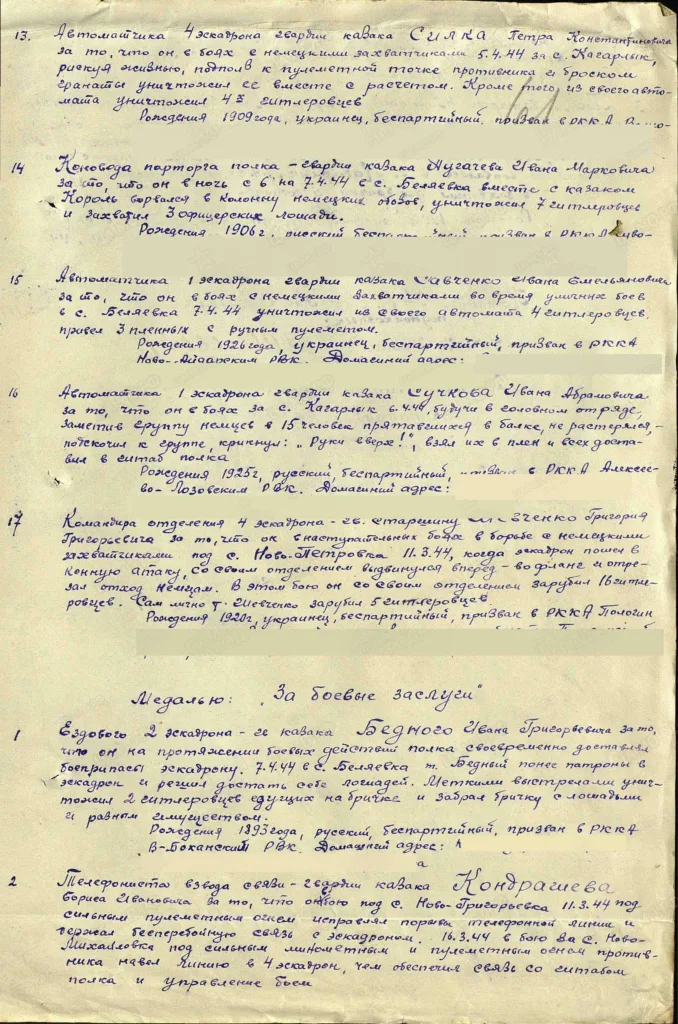 13. Автоматчика 4 эскадрона гвардии казака СИЛКА Петра Константиновича
за то, что он в боях с немецкими захватчиками 5.4.44 за с. Кагарлык,
рискуя жизнью, подполз к пулеметной точке противника и броском
гранаты уничтожил ее вместе с расчетом. Кроме того из своего авто-
мата уничтожил 4х гитлеровцев
Рождения 1909 года, украинец, беспартийный, призван в РККА
14 Коновода парторга полка – гвардии казака Пугачева Ивана Марковича
за то, что он в ночь с 6 на 7.4.44 в с. Беляевка вместе с казаком
Король ворвался в колонну немецких обозов, уничтожил 7 гитлеровцев
и захватил 3 офицерских лошади.
Рождения 1906 г. русский призван в РККА
15 Автоматчика 1 эскадрона гвардии казака Савченко Ивана Емельяновича
за то, что он в боях с немецкими захватчиками во время уличных боев
в с. Беляевка 7.4.44 уничтожил из своего автомата 4 гитлеровцев,
привел 3 пленных с ручным пулеметом.
Рождения 1926 года, украинец, беспартийный, призван в РККА
Ново-Айдарским РВК. Домашний адрес:
16 Автоматчика 1 эскадрона гвардии казака Сучкова Ивана Абрамовича
за то, что он в боях за с. Кагарлык 6.4.44, будучи в головном отряде,
заметив группу немцев в 15 человек прятавшихся в балке, не растерялся, –
подскочил к группе, крикнул: „Руки вверх!", взял их в плен и всех доста-
вил в штаб полка
Рождения 1925 г, русский, беспартийный, призван в РККА Алексее-
во-Лозовским РВК. Домашний адрес:
17 Командира отделения 4 эскадрона – гв. старшину Шевченко Григория
Григорьевича за то, что он в наступательных боях в борьбе с немецкими
захватчиками под с. Ново-Петровка 11.3.44, когда эскадрон пошел в
конную атаку, со своим отделением выдвинулся вперед – во фланг и отре-
зал отход немцам. В этом бою он со своим отделением зарубил 16 гитле-
ровцев. Сам лично т. Шевченко зарубил 5 гитлеровцев
Рождения 1920 г, украинец, беспартийный, призван в РККА Пологин
Медалью: „За боевые заслуги"
1 Ездового 2 эскадрона – гв казака Бедного Ивана Григорьевича за то,
что он на протяжении боевых действий полка своевременно доставлял
боеприпасы эскадрону. 7.4.44 в с. Беляевка т. Бедный понес патроны в
эскадрон и решил достать себе лошадей. Меткими выстрелами унич-
тожил 2 гитлеровцев едущих на бричке и забрал бричку с лошадьми
и разным имуществом.
Рождения 1893 года, русский, беспартийный, призван в РККА
В-Боканским РВК. Домашний адрес:
2 Телефониста взвода связи – гвардии казака Кондрашева
Бориса Ивановича за то, что он в бою под с. Ново-Григорьевка 11.3.44 под
сильным пулеметным огнем исправлял порывы телефонной линии и
держал бесперебойную связь с эскадроном. 16.3.44 в бою за с. Ново-
Михайловка под сильным минометным и пулеметным огнем против-
ника навел линию в 4 эскадрон, чем обеспечил связь со штабом
полка и управление боем